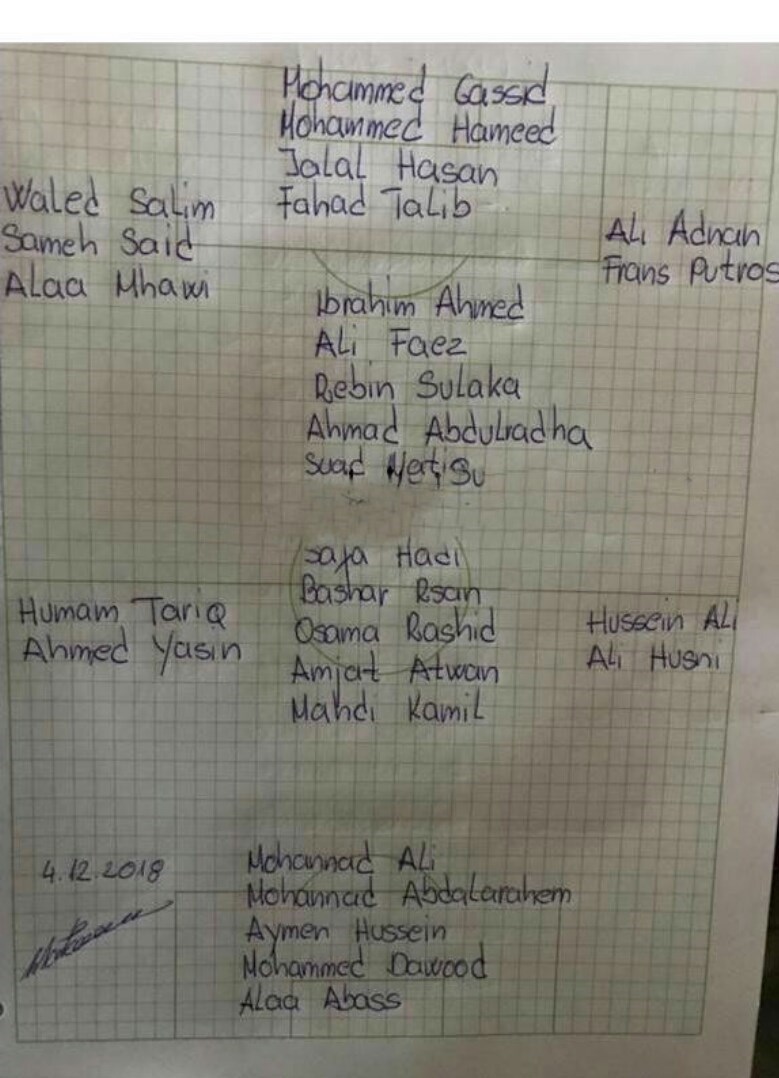 Mohammed Gassid
Mohammed Hameed
Jalal Hasan
Fahad Talib
Waled Salim
Sameh Said
Alaa Mhawi
Ali Adnan
Frans Putros
Ibrahim Ahmed
Ali Faez
Rebin Sulaka
Ahmad Abdulradha
Suad
Humam Tariq
Ahmed Yasin
Safa Hadi
Bashar Rsan
Osama Rashid
Amjat Atwan
Mahdi Kamil
Hussein Ali
Ali Husni
4.12.2018
Mohannad Ali
Mohannad Abdalarahem
Aymen Hussein
Mohammed Dawood
Alaa Abass